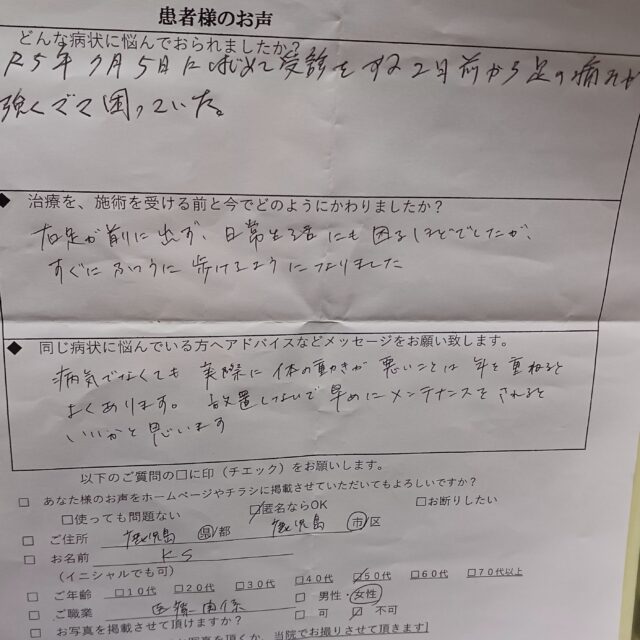 患者様のお声
どんな病状に悩んでおられましたか？
R5年7月5日にはじめて受診をする2日前から足の痛みが
強くでて困っていた。
◆ 治療を、施術を受ける前と今でどのようにかわりましたか？
右足が前に出ず、日常生活にも困るほどでしたが、
すぐにふつうに歩けるようになりました
◆ 同じ病状に悩んでいる方へアドバイスなどメッセージをお願い致します。
病気でなくても 実際に体の動きが悪いことは年を重ねると
よくあります。放置しないで早めにメンテナンスをされると
いいかと思います
以下のご質問の□に印（チェック）をお願いします。
□ あなた様のお声をホームページやチラシに掲載させていただいてもよろしいですか？
□使っても問題ない ☑匿名ならOK □お断りしたい
□ ご住所 鹿児島 県/都 鹿児島 市/区
□ お名前 KS
（イニシャルでも可）
□ ご年齢 □10代 □20代 □30代 □40代 ☑50代 □60代 □70代以上
□ ご職業 医療関係 □ 男性・女性
□ お写真を掲載させて頂けますか？ □ 可 ☑ 不可
写真を頂くか、当院でお撮りさせて頂きます］